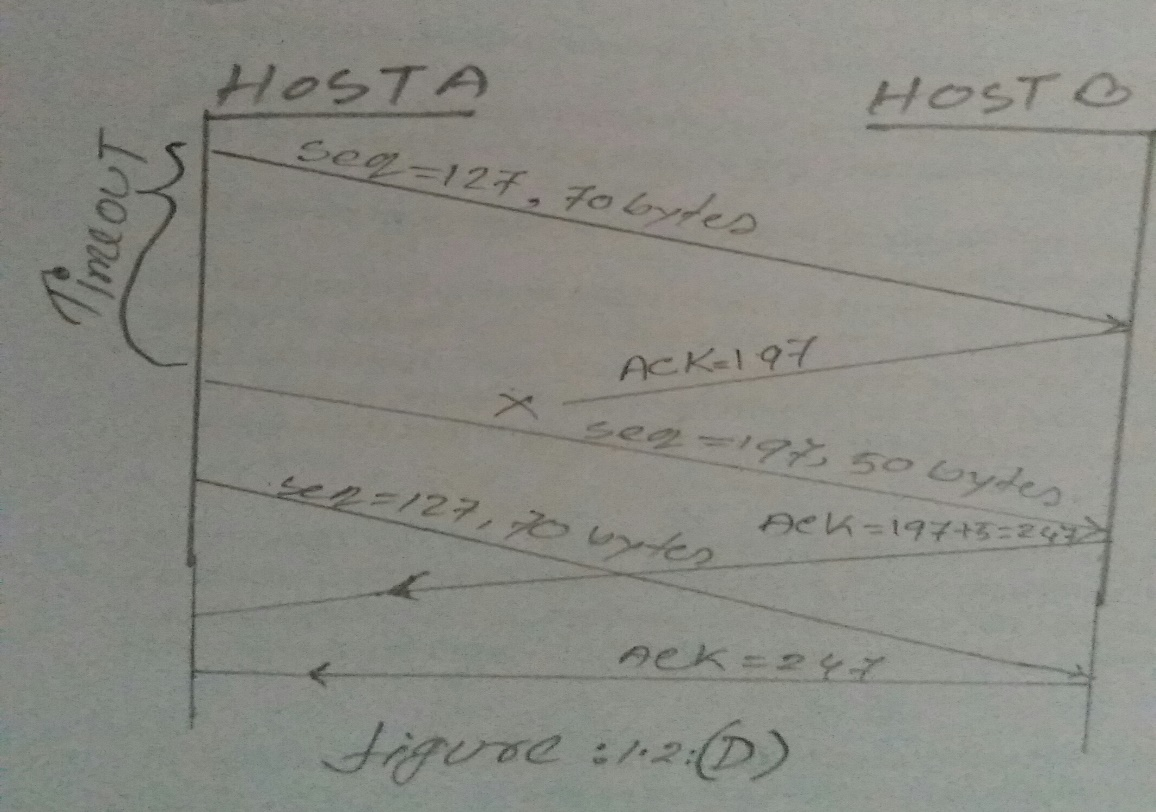 HOST A
HOST B
Timeout
seq=127, 70 bytes
ACK=197
×
seq=197, 50 bytes
seq=127, 70 bytes
ACK=197+5=247
ACK=247
figure :1.2:(D)